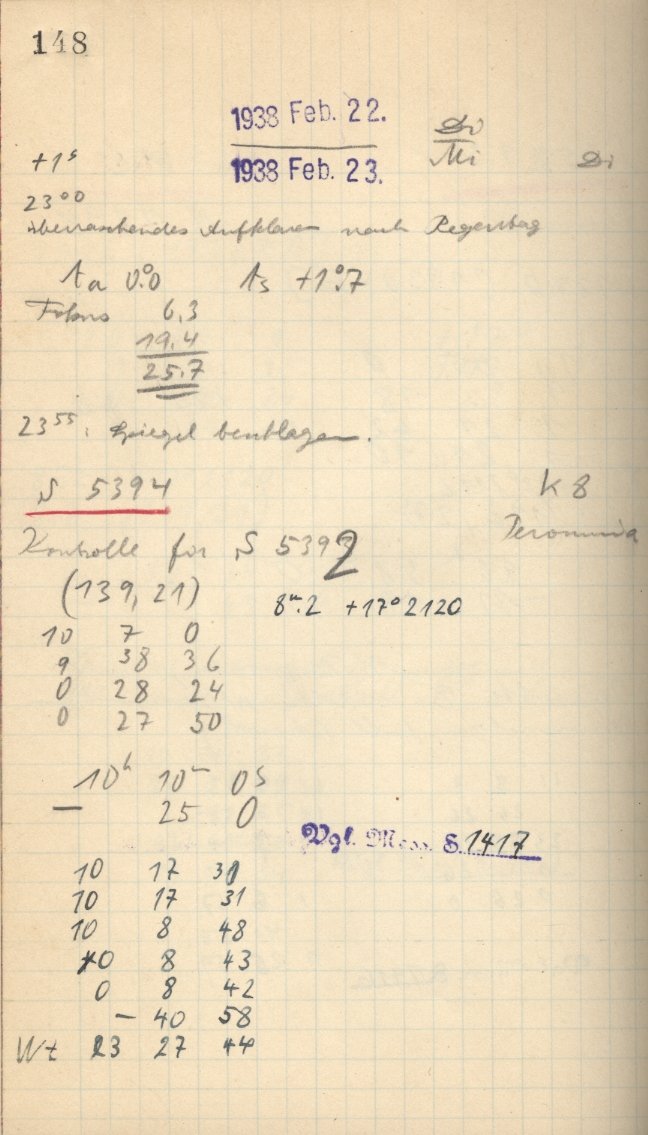 148
1938 Feb. 22. Di
1938 Feb. 23. Mi Di
+1ˢ
23⁰⁰
überraschendes Aufklaren nach Regentag
ta 0°.0 ts +1°.7
Fokus 6,3
19.4
25.7
23⁵⁵: Spiegel beschlagen.
S 5394 K 8
Kontrolle für S 5392
(139, 21) 8ᵐ.2 +17° 2120
10 7 0
9 38 36
0 28 24
0 27 50
10ʰ 10ᵐ 0ˢ
— 25 0
Vgl. Mess. S. 1417
10 17 31
10 17 31
10 8 48
0 8 43
0 8 42
– 40 58
Wt 23 27 44